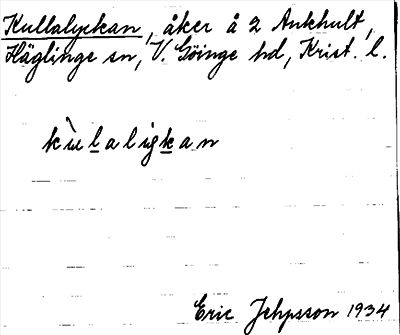 Kullalyckan, åker å 2 Ankhult,
Häglinge sn, V. Göinge hd, Krist. l.
Eric Jeppsson 1934